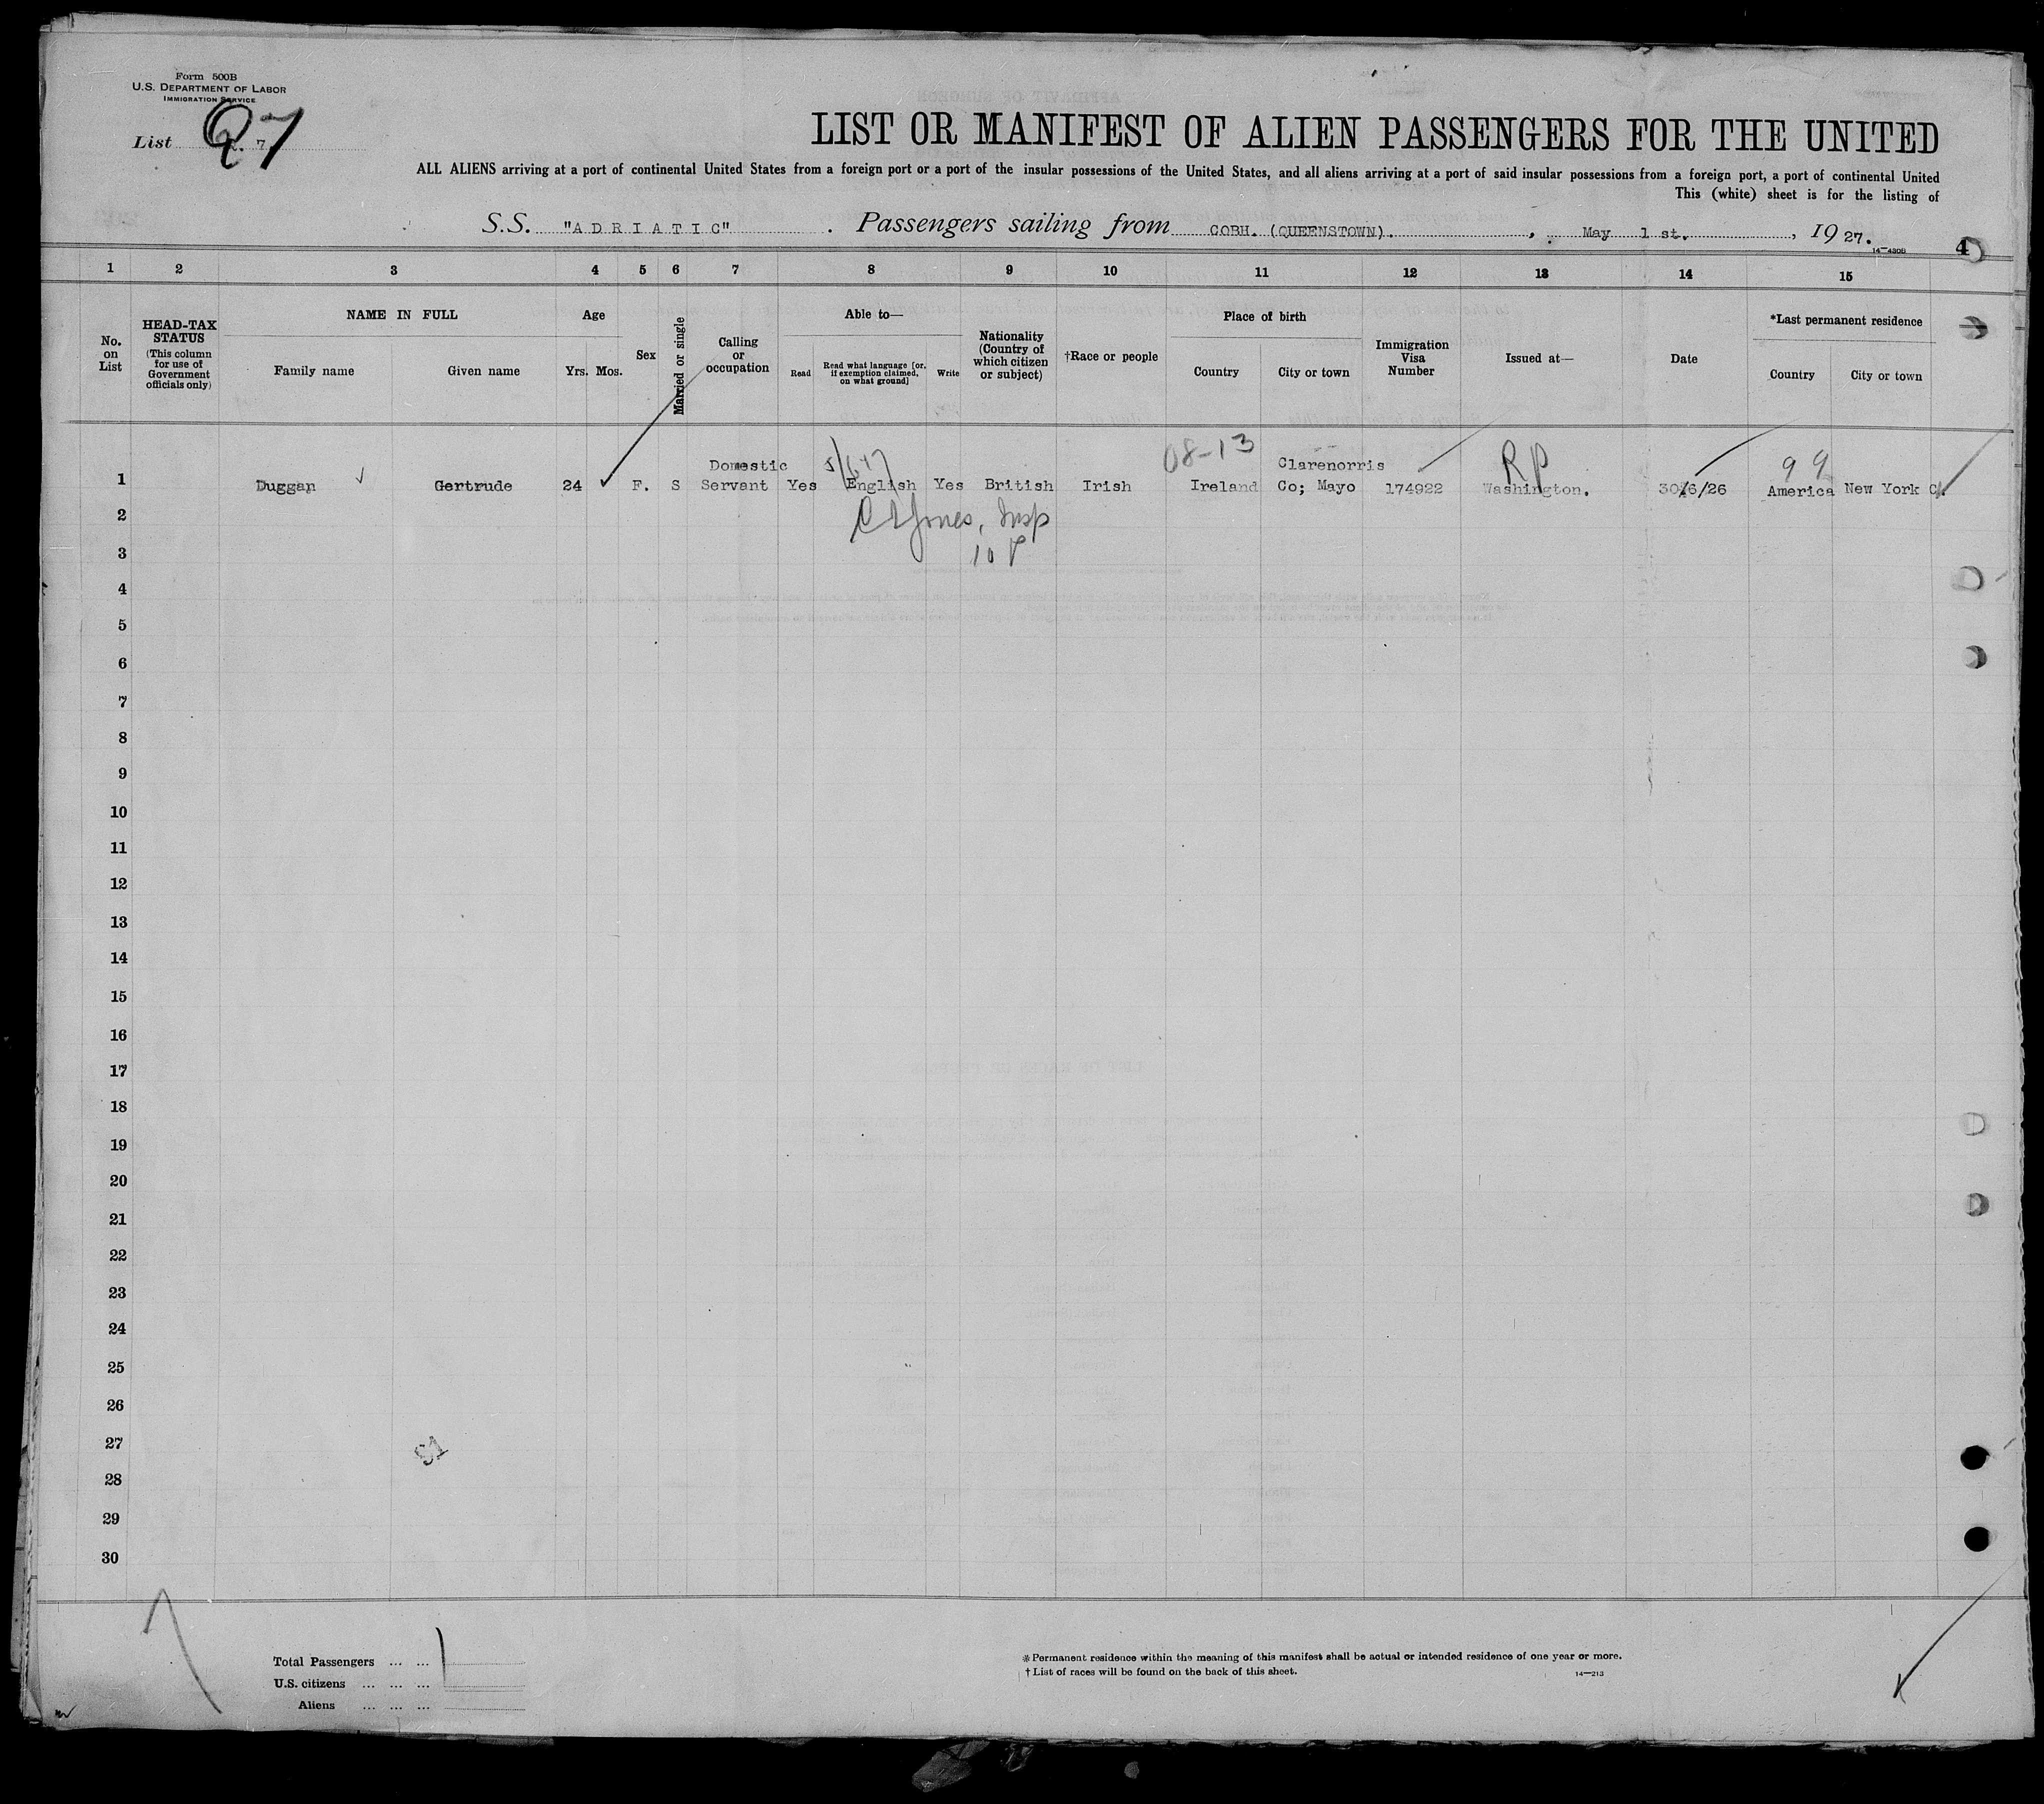 Form 500B
U.S. DEPARTMENT OF LABOR
IMMIGRATION SERVICE
List 7.
Q7
LIST OR MANIFEST OF ALIEN PASSENGERS FOR THE UNITED
ALL ALIENS arriving at a port of continental United States from a foreign port or a port of the insular possessions of the United States, and all aliens arriving at a port of said insular possessions from a foreign port, a port of continental United
This (white) sheet is for the listing of
S.S. "ADRIATIC". Passengers sailing from COBH. (QUEENSTOWN). , May 1 st. , 19 27.
14—430B
4
1 2 3 4 5 6 7 8 9 10 11 12 13 14 15
No. on List
HEAD-TAX STATUS
(This column for use of Government officials only)
NAME IN FULL
Family name
Given name
Age
Yrs. Mos.
Sex
Married or single
Calling or occupation
Able to—
Read
Read what language [or, if exemption claimed, on what ground]
Write
Nationality (Country of which citizen or subject)
†Race or people
Place of birth
Country
City or town
Immigration Visa Number
Issued at—
Date
*Last permanent residence
Country
City or town
08-13
RP
99
5/647
Domestic Clarenorris
1 Duggan Gertrude 24 F. S Servant Yes English Yes British Irish Ireland Co; Mayo 174922 Washington. 30/6/26 America New York C.
2
Jones, Insp
3
10
4
5
6
7
8
9
10
11
12
13
14
15
16
17
18
19
20
21
22
23
24
25
26
27
51
28
29
30
Total Passengers ... ...
U.S. citizens ... ... ...
Aliens ... ... ...
* Permanent residence within the meaning of this manifest shall be actual or intended residence of one year or more.
† List of races will be found on the back of this sheet.
14—213